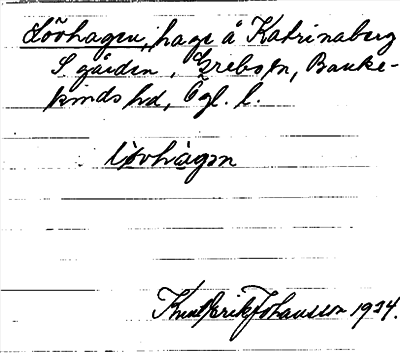 Lövhagen, hage å Katrinaberg
S gården, Grebo sn, Banke-
kinds hd, Ögl. l.
lövhàgen
Knut Erik Johansson 1934.